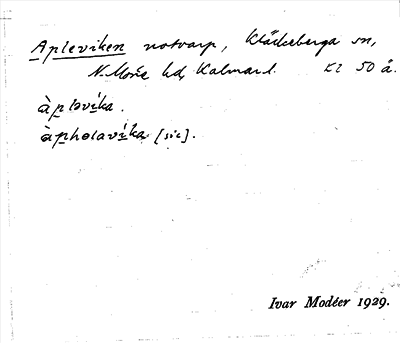 Apleviken notvarp, Kläckeberga sn,
N. Möre hd, Kalmar l. Kl 50 å.
àplǝvika.
àpholavíka [sic].
Ivar Modéer 1929.